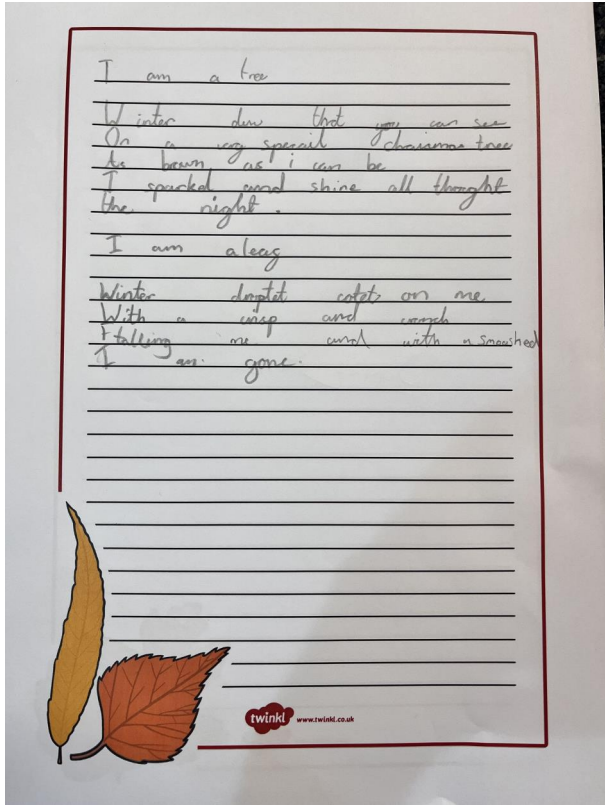 I am a tree
Winter dew that you can see
On a very sperail chrismas tree
As brown as i can be
I sparkel and shine all throght
the night.
I am a leag
Winter droplet on me
With a crisp and crunch
falling me and with a smoushed
I am gone.
twinkl www.twinkl.co.uk